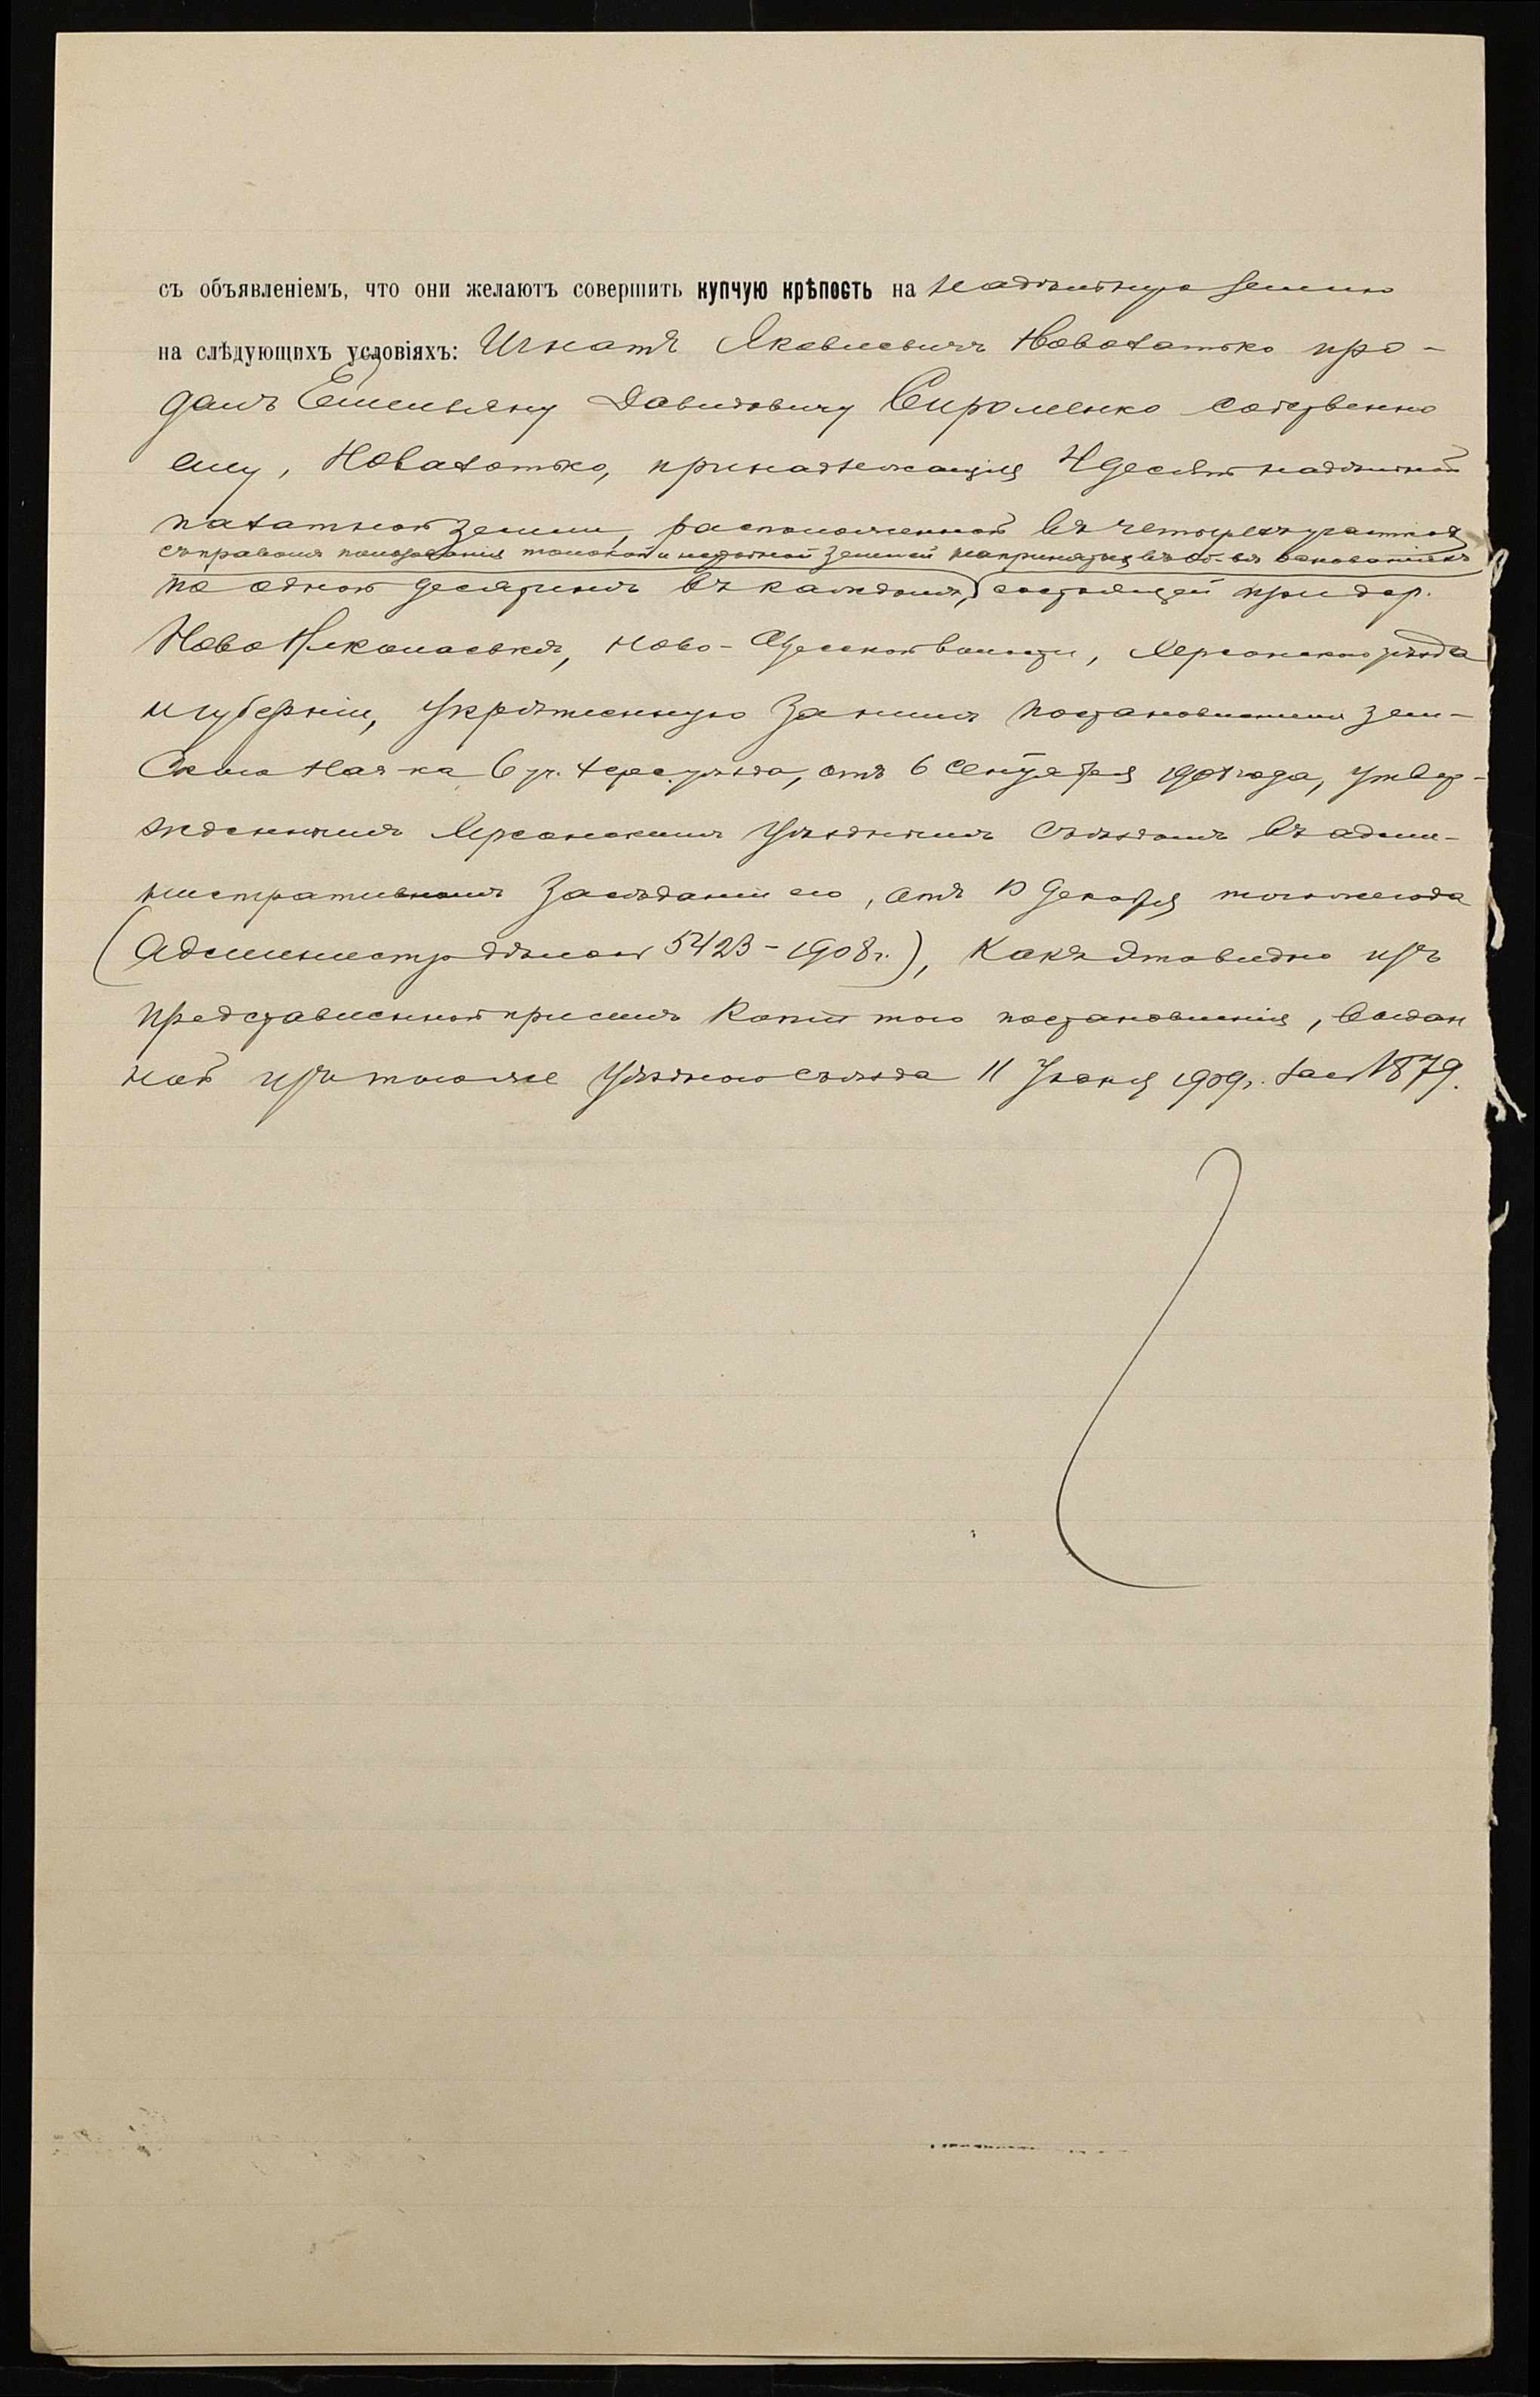 съ объявленіемъ, что они желаютъ совершить купчую крѣпость на надѣльную землю
на слѣдующихъ условіяхъ: Игнатъ Яковлевичъ Новохатько про-
далъ Емельяну Давидовичу Сироменко собственно
ему, Новохатько, принадлежащія 4 десят. надѣльной
пахатной земли, расположенной въ четырехъ участкахъ
съ правомъ пользованія толокой и неудобной землей на принятыхъ въ об-вѣ основаніяхъ
по одной десятинѣ въ каждомъ, состоящей при дер.
Ново Николаевкѣ, Ново-Одесской волости, Херсонскаго уѣзда
и губерніи, укрѣпленную за нимъ постановленіемъ Зем-
скаго Нач-ка 6 уч. Херс. уѣзда, отъ 6 Сентября 1908 года, утвер-
жденнымъ Херсонскимъ Уѣзднымъ Съѣздомъ въ адми-
нистративномъ засѣданіи его, отъ Декабря того же года
(Администр. дѣло № 5423-1908 г.), какъ это видно изъ
представленной при семъ копіи того постановленія, выдан
ной изъ того же Уѣзднаго съѣзда 11 1909 г. за № 1879.